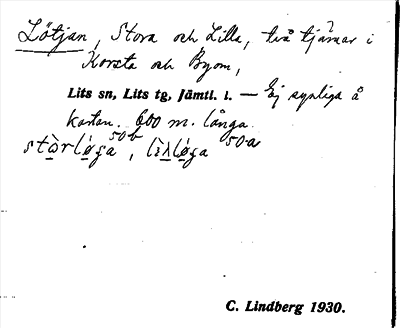 Lötjan, Stora och Lilla, två tjärnar i
Korsta och Byom,
Lits sn, Lits tg, Jämtl. l. — Ej synliga å
kartan. 600 m. långa.
50b 50a
C. Lindberg 1930.